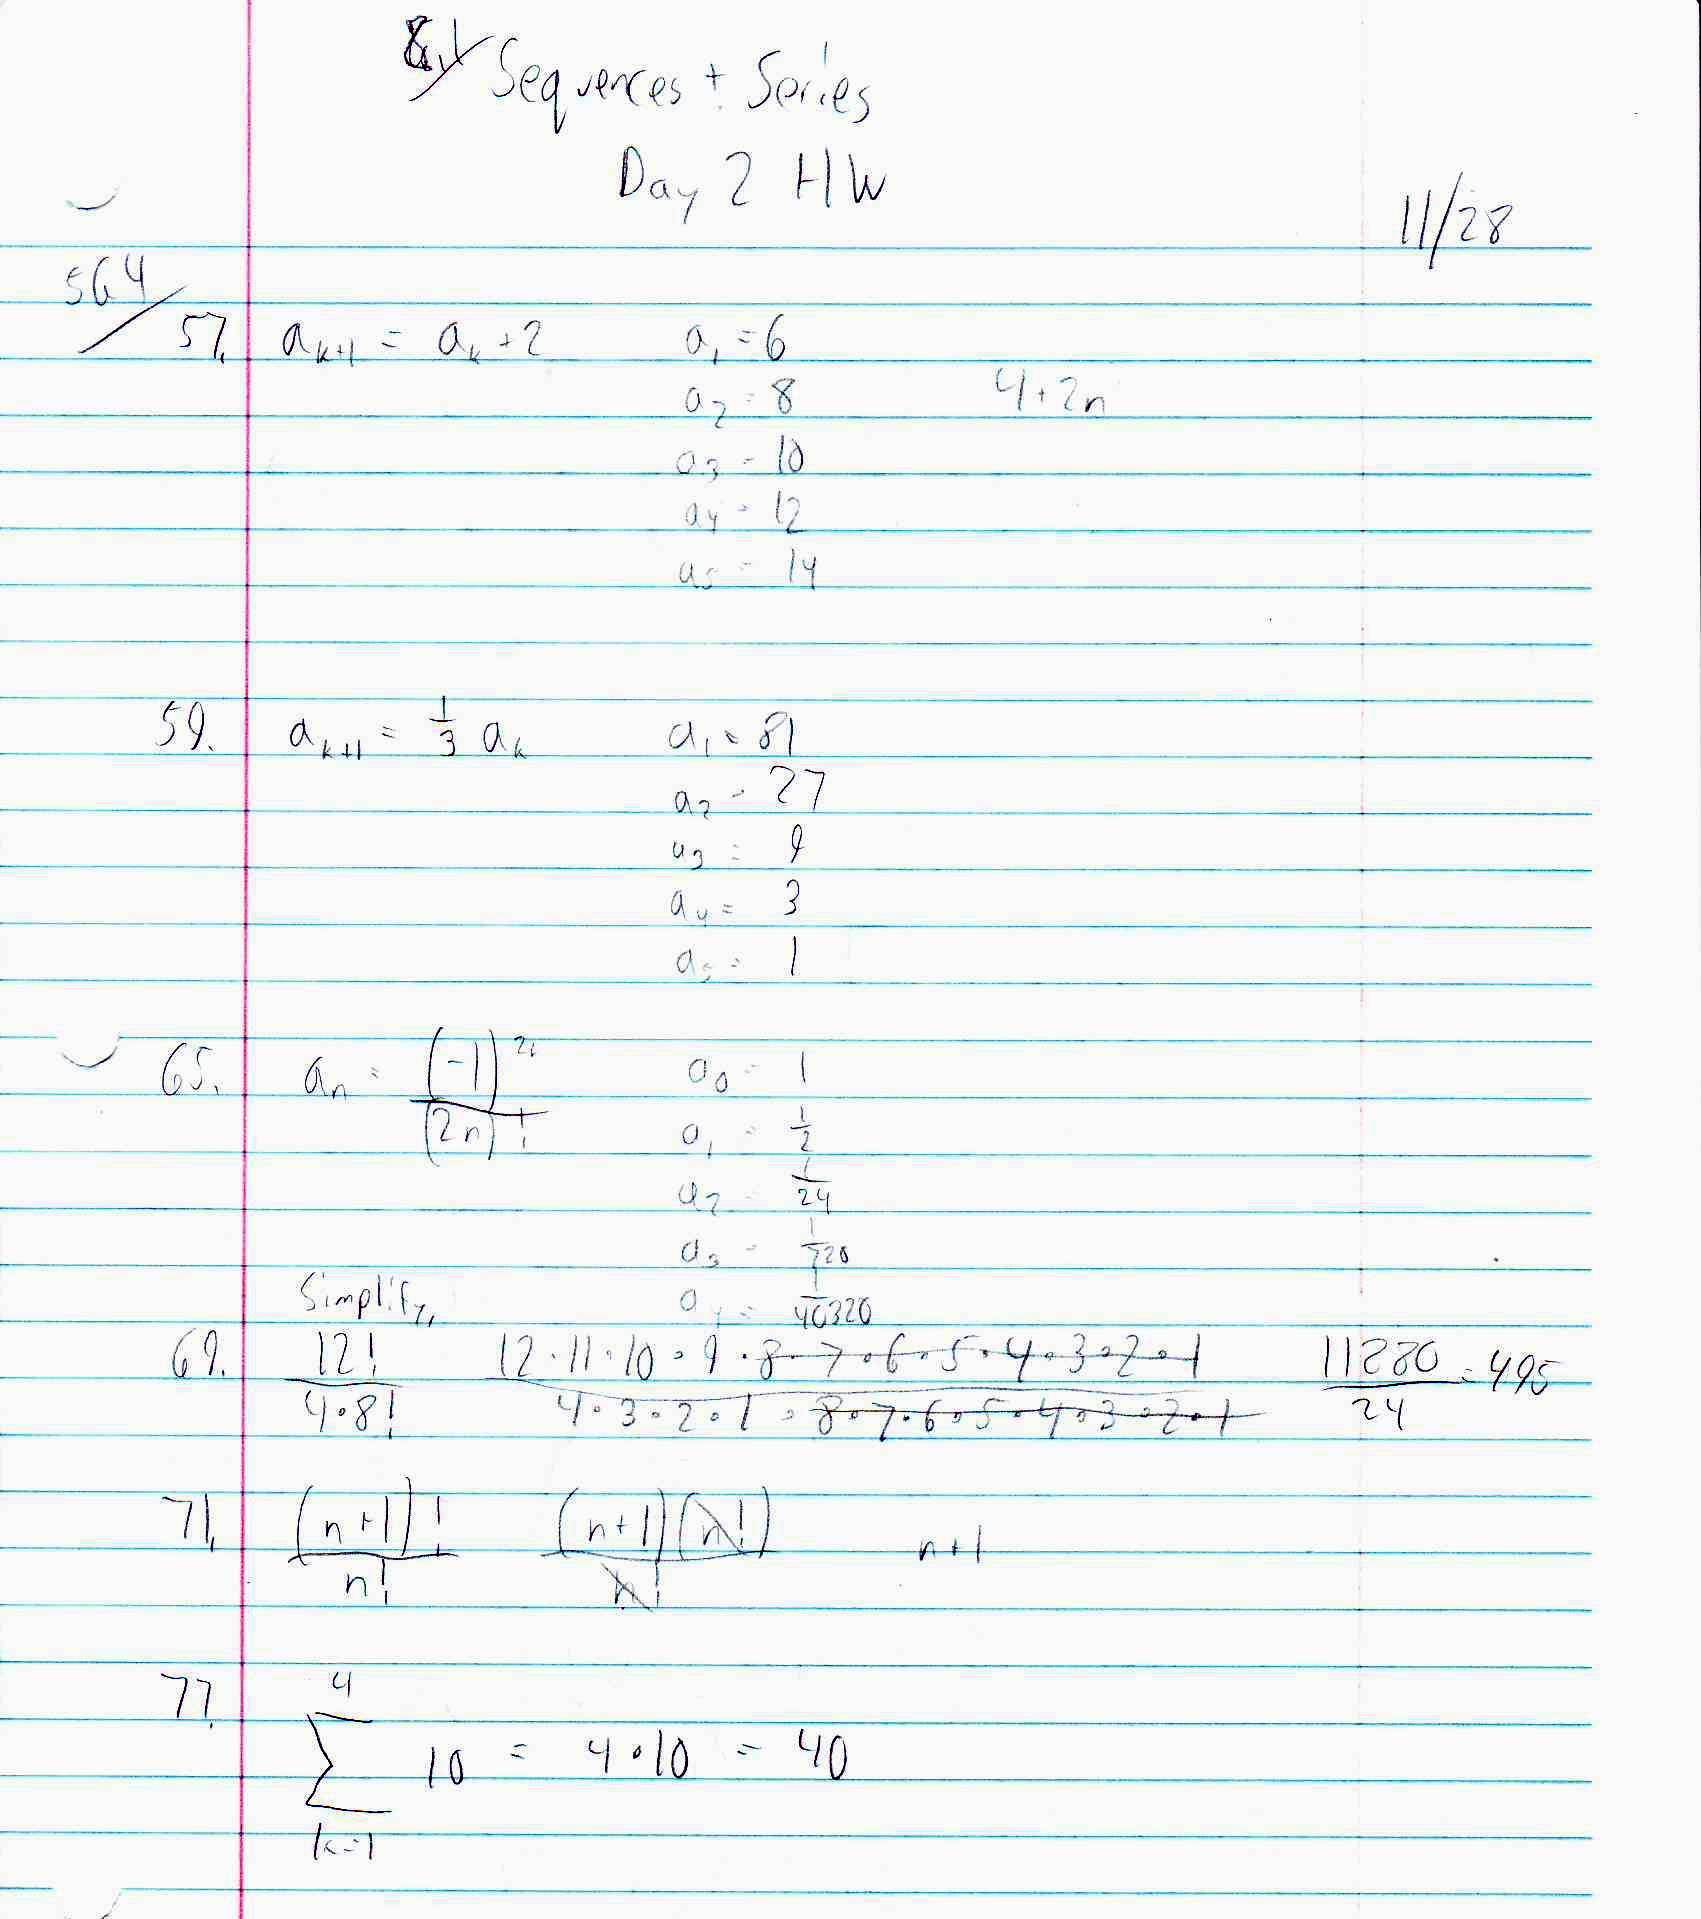 Sequences + Series
Day 2 HW
11/28
564/
57. a_{k+1} = a_k + 2 a_1 = 6
a_2 = 8 4 + 2n
a_3 = 10
a_4 = 12
a_5 = 14
59. a_{k+1} = 1/3 a_k a_1 = 81
a_2 = 27
a_3 = 9
a_4 = 3
a_5 = 1
65. a_n = (-1)^{2n}/(2n)! a_0 = 1
a_1 = 1/2
a_2 = 1/24
a_3 = 1/720
Simplify, a_4 = 1/40320
69. 12!/4·8! 12·11·10·9·8·7·6·5·4·3·2·1/4·3·2·1·8·7·6·5·4·3·2·1 11880/24 = 495
71. (n+1)!/n! (n+1)(n!)/n! n+1
77. 4
∑ 10 = 4·10 = 40
k=1